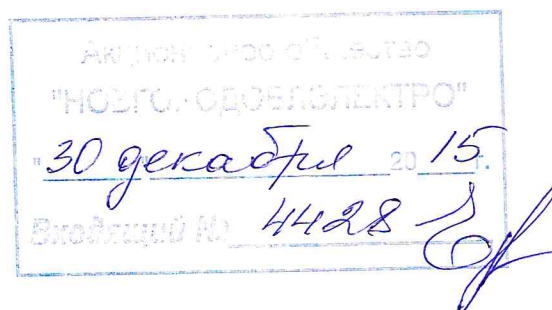 Акционерное общество
"НОВГОРОДОБЛЭЛЕКТРО"
"30" декабря 2015 г.
Входящий № 4428